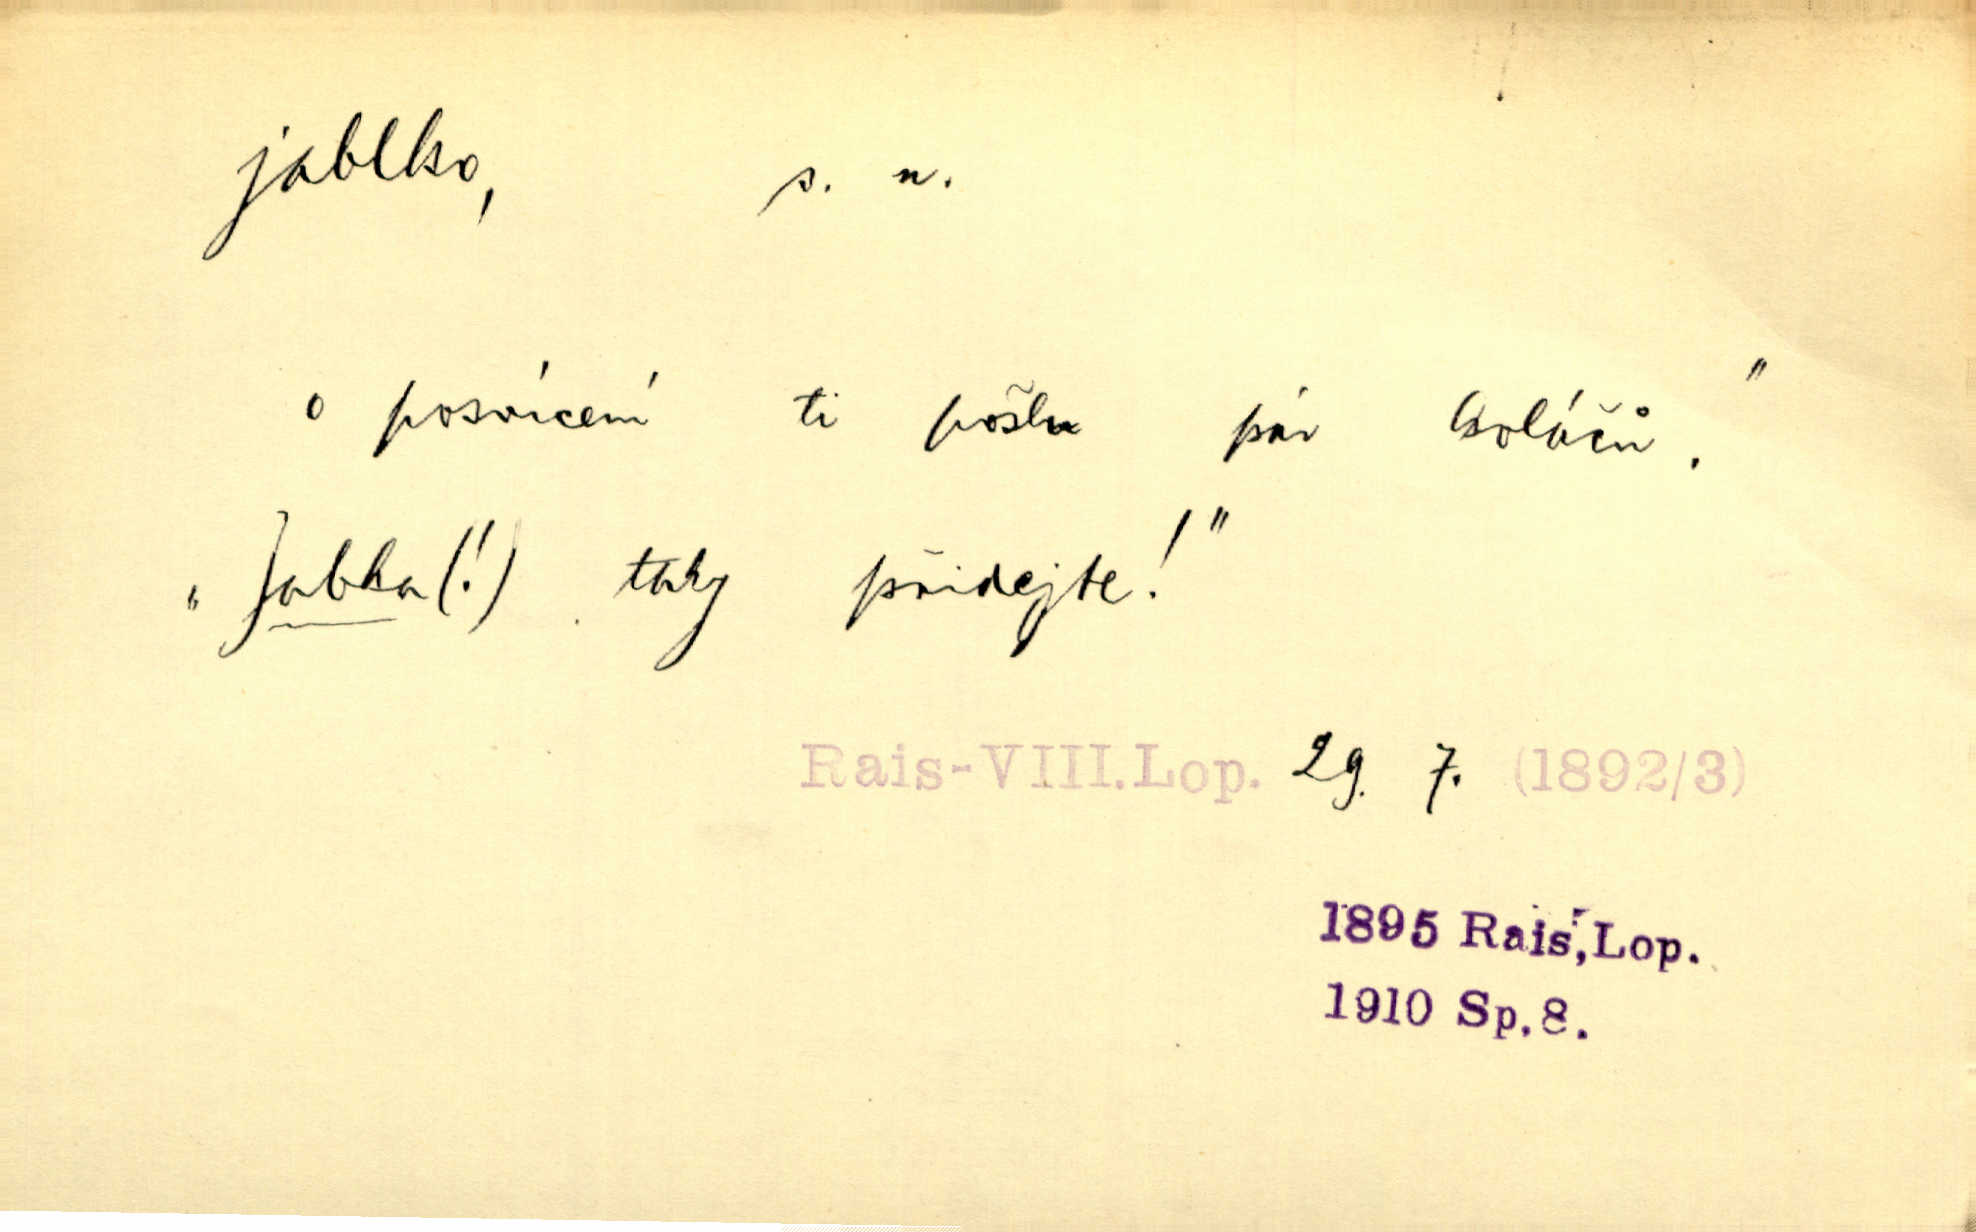 jablko, s. n.
o posvícení ti pošlu pár koláčů."
„Jabka(!) taky přidejte!"
Rais-VIII.Lop. 29. 7. (1892/3)
1895 Rais, Lop.
1910 Sp. 8.